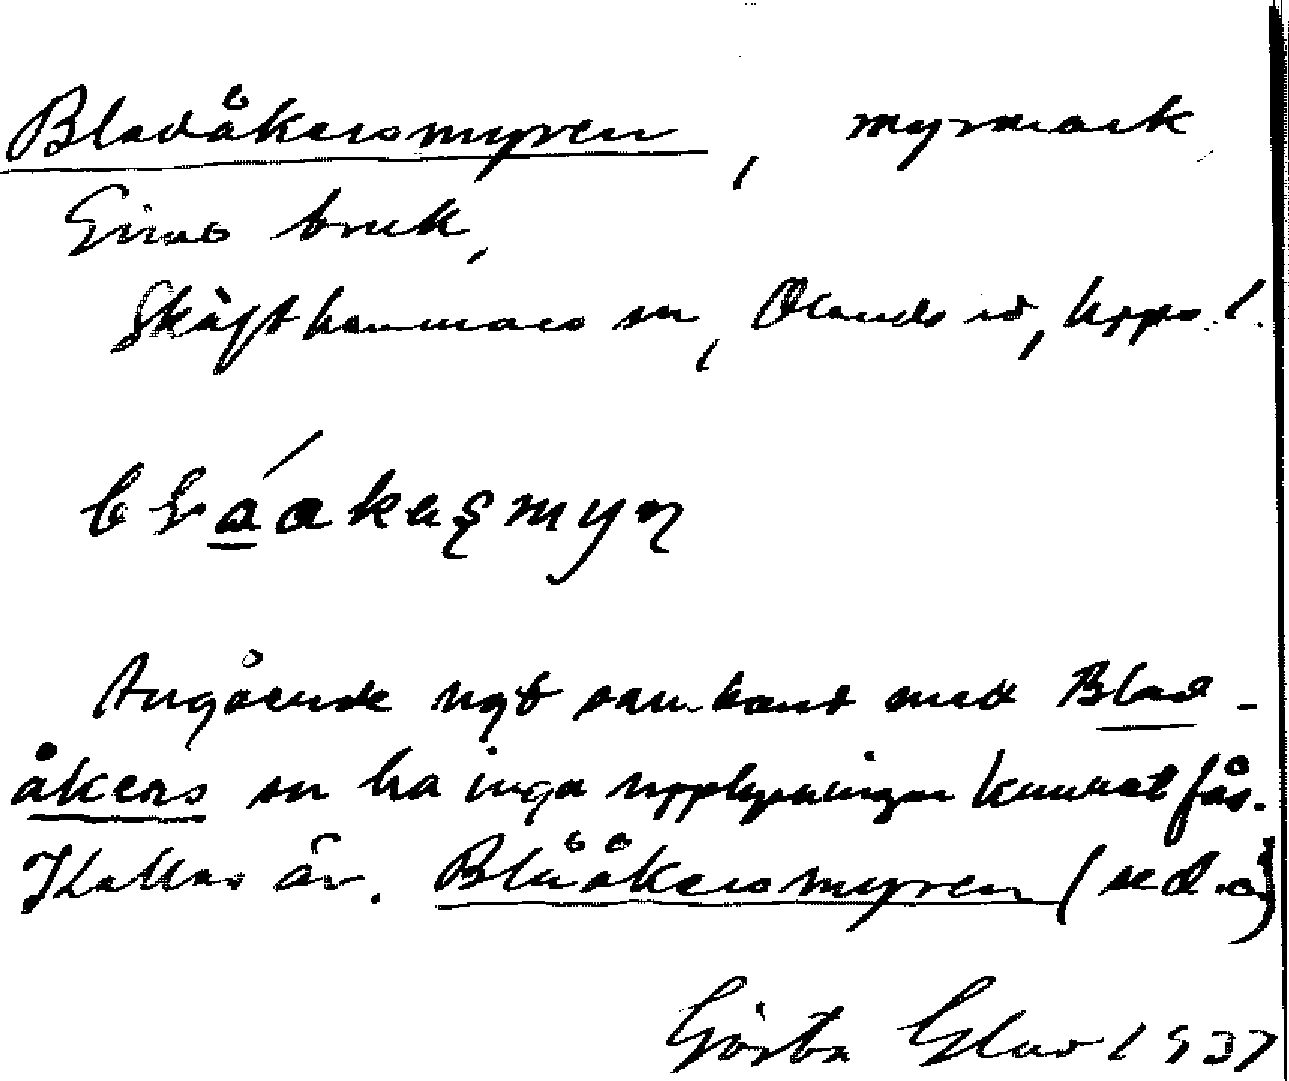 Bladåkersmyren, myrmark
Gimo bruk,
Skäfthammars sn, Olands hd, Upps. l.
Angående ngt samband med Blad-
åkers sn ha inga upplysningar kunnat fås.
Kallas äv. Blååkersmyren (se d.o.)
Gösta Glad 1937